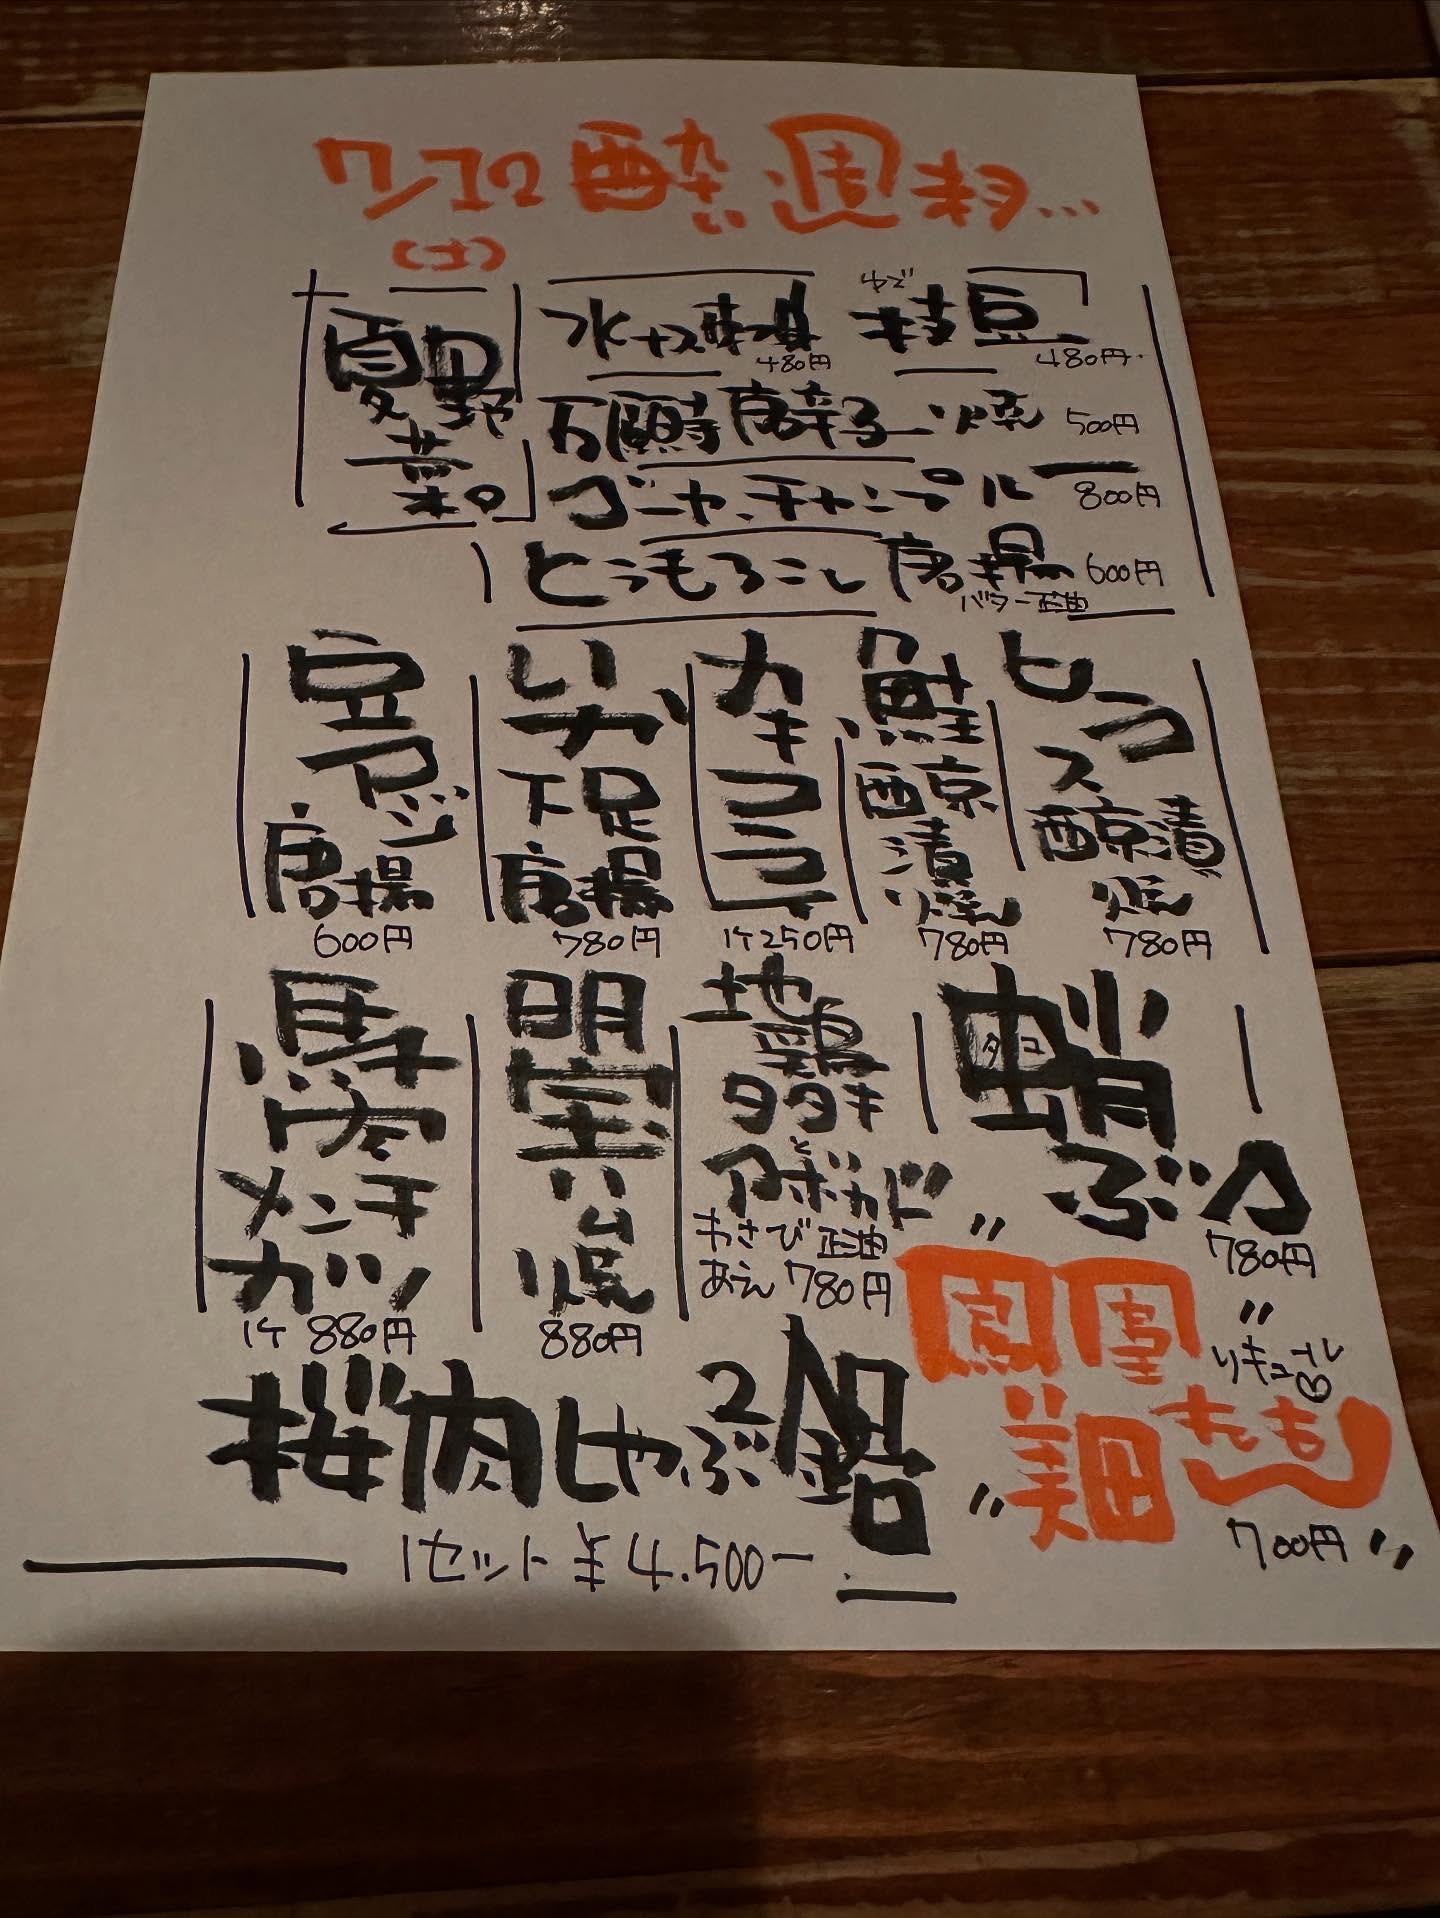 7/12 酔い週末...
(土)
夏野菜。
水ナス漬 480円
ゆで枝豆 480円
万願寺唐辛子一焼 500円
ゴーヤーチャンプルー 800円
とうもろこし唐揚 バター正油 600円
ヒラマス西京漬焼 780円
鮭西京漬焼 780円
カキフライ 1ケ250円
いか下足唐揚 780円
豆アジ唐揚 600円
蛸ぶつ タコ 780円
地鶏タタキとアボカド
わさび正油
あえ 780円
明宝ハム焼 880円
馬肉メンチカツ
1ケ 880円
桜肉しゃぶ2鍋
1セット ¥4.500ー
"鳳凰美田もも"
リキュール♡
700円